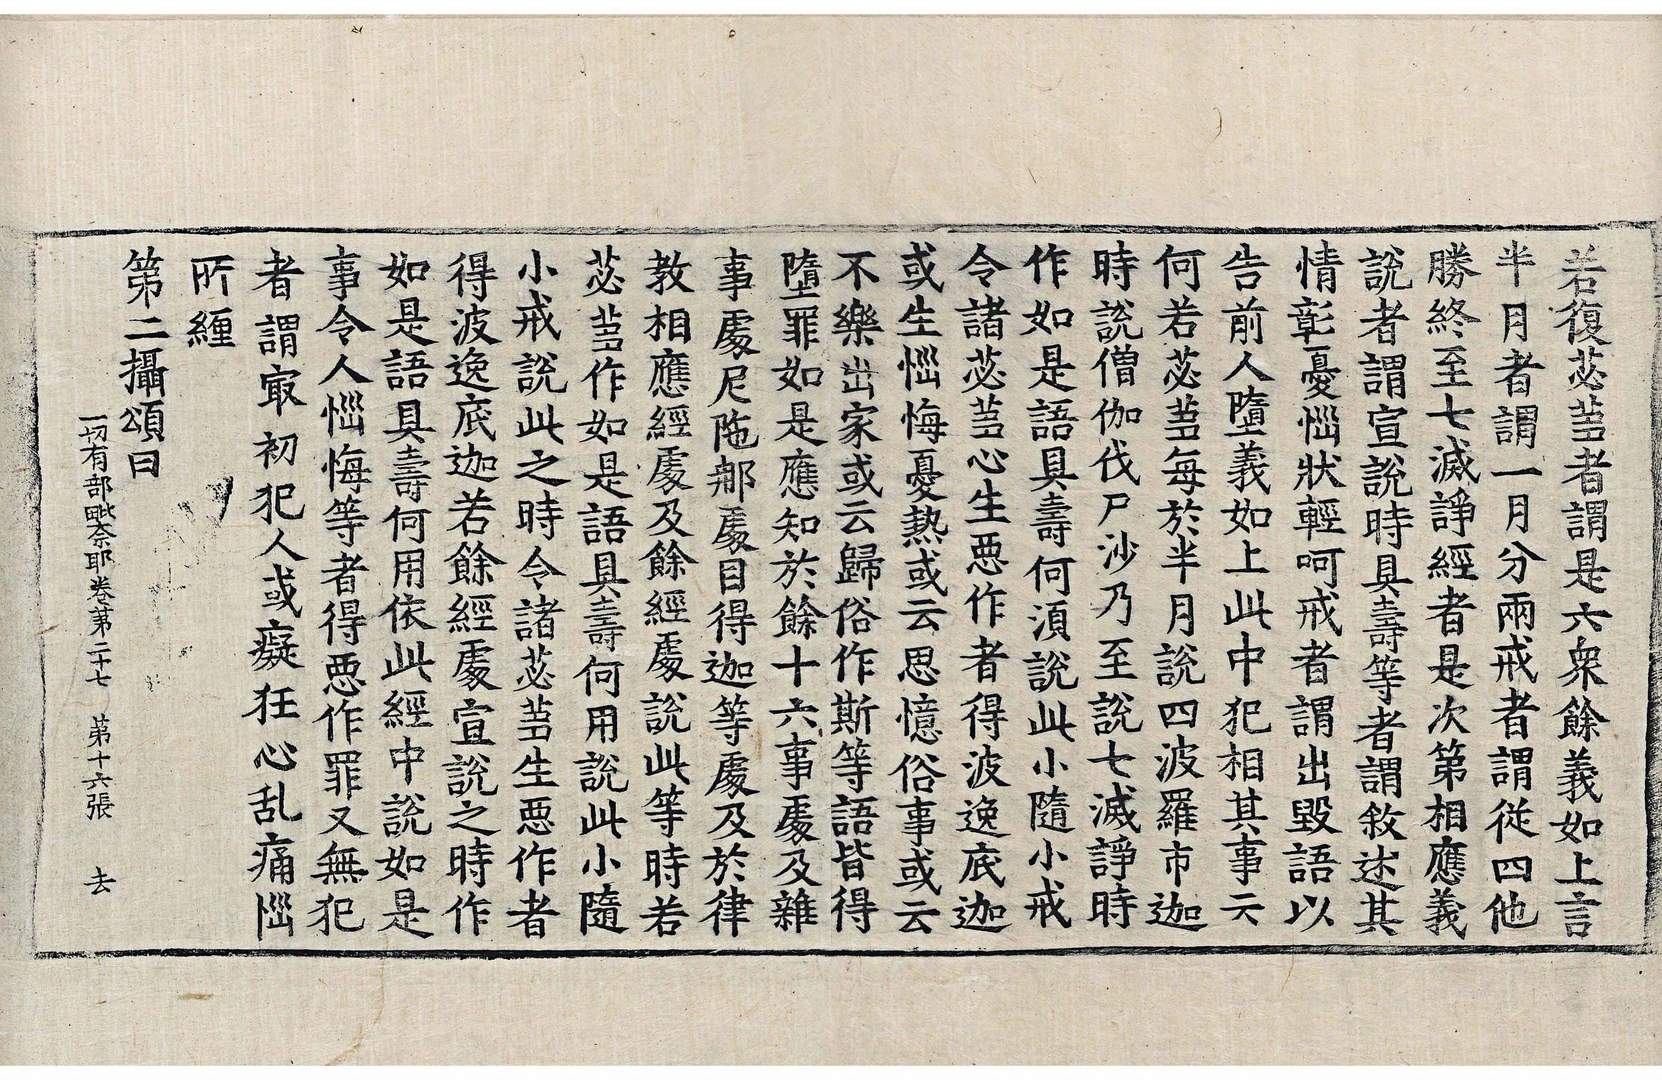 若復苾蒭者謂是六衆餘義如上言
半月者謂一月分兩戒者謂從四他
勝終至七滅諍經者是次第相應義
說者謂宣說時具壽等者謂敘述其
情彰憂惱狀輕呵戒者謂出毀語以
告前人墮義如上此中犯相其事云
何若苾蒭每於半月說四波羅市迦
時說僧伽伐尸沙乃至說七滅諍時
作如是語具壽何湏說此小隨小戒
令諸苾蒭心生惡作者得波逸底迦
或生惱悔憂熱或云思憶俗事或云
不樂出家或云歸俗作斯等語皆得
墮罪如是應知於餘十六事處及雜
事處尼陁那處目得迦等處及於律
教相應經處及餘經處說此等時若
苾蒭作如是語具壽何用說此小隨
小戒說此之時令諸苾蒭生惡作者
得波逸底迦若餘經處宣說之時作
如是語具壽何用依此經中說如是
事令人惱悔等者得惡作罪又無犯
者謂㝡初犯人或癡狂心乱痛惱
所纏
第二攝頌曰
一切有部毗奈耶卷苐二十七 第十六張 去